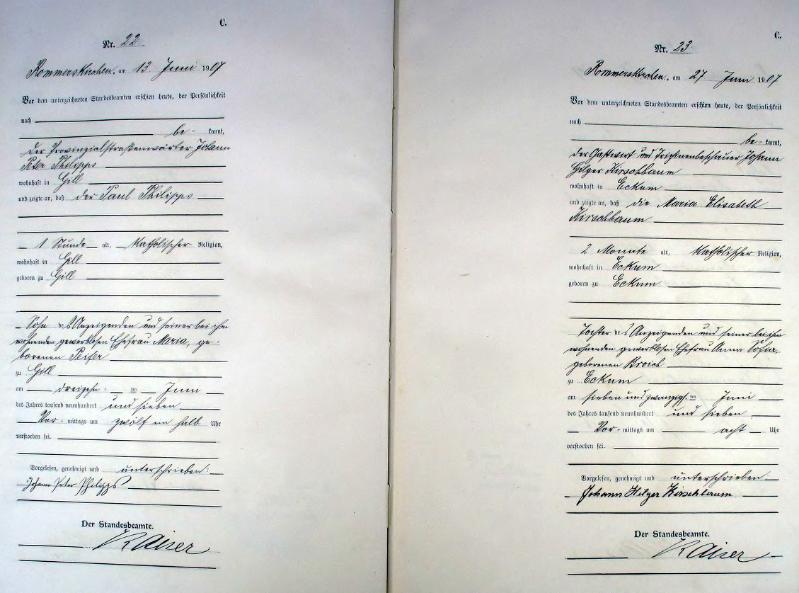 C.
Nr. 22
Rommerskirchen, am 13 Juni 1907
Vor dem unterzeichneten Standesbeamten erschien heute, der Persönlichkeit
nach
be- kannt,
der Provinzialstraßenwärter Johann
Peter Philipps
wohnhaft in Gill
und zeigte an, daß der Paul Philipps
1 Stunde alt, katholischer Religion,
wohnhaft in Gill
geboren zu Gill
Sohn des Anzeigenden und seiner bei ihm
wohnenden gewerblosen Ehefrau Maria, ge-
borenen
zu Gill
am dreizehnten Juni
des Jahres tausend neunhundert und sieben
Vor- mittags um zwölf ein halb Uhr
verstorben sei.
Vorgelesen, genehmigt und unterschrieben
Johann Peter Philipps
Der Standesbeamte.
Kaiser
C.
Nr. 23
Rommerskirchen, am 27 Juni 1907
Vor dem unterzeichneten Standesbeamten erschien heute, der Persönlichkeit
nach
be- kannt,
der Gastwirt und Trichinenbeschauer Johann
Hilger Kirschbaum
wohnhaft in Eckum
und zeigte an, daß die Maria Elisabeth
Kirschbaum
2 Monate alt, katholischer Religion,
wohnhaft in Eckum
geboren zu Eckum
Tochter des Anzeigenden und seiner bei ihm
wohnenden gewerblosen Ehefrau Anna Sofia,
geborenen Broich
zu Eckum
am sieben und zwanzigsten Juni
des Jahres tausend neunhundert und sieben
Vor- mittags um acht Uhr
verstorben sei.
Vorgelesen, genehmigt und unterschrieben
Johann Hilger Kirschbaum
Der Standesbeamte.
Kaiser